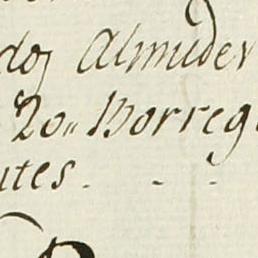 dos Almudes
20,, Borreg
utes. - -